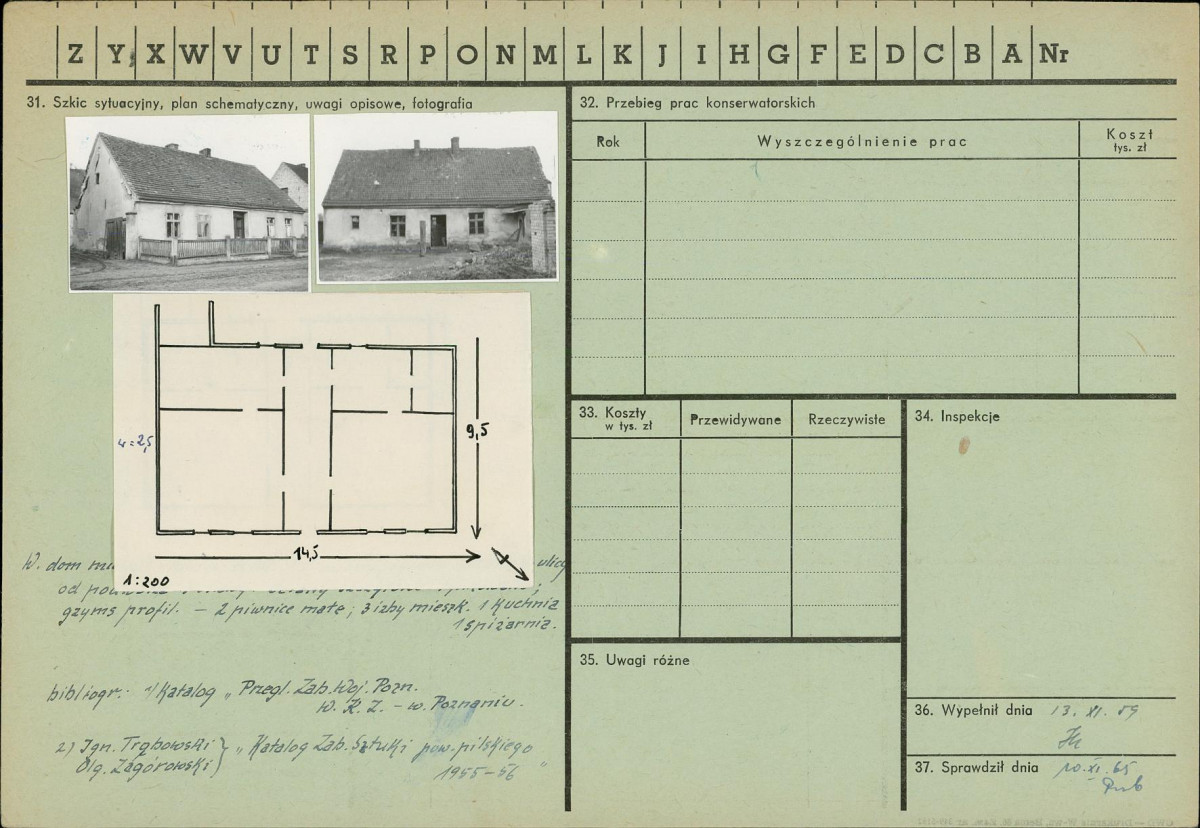 Z Y X W V U T S R P O N M L K J I H G F E D C B A Nr
31. Szkic sytuacyjny, plan schematyczny, uwagi opisowe, fotografia
9,5
14,5
1:200
W. dom ulicy
od
gzyms profil. — 2 piwnice małe; 3 izby mieszk. 1 Kuchnia
1 spiżarnia.
bibliogr: 1/ Katalog „Przegl. Zab. Woj. Pozn.
W. K. Z. – w. Poznaniu.
2) Ign. Trąbowski } „Katalog Zab. Sztuki pow. pilskiego"
Olg. Zagórowski 1955–56
32. Przebieg prac konserwatorskich
Rok Wyszczególnienie prac Koszt
tys. zł
33. Koszty Przewidywane Rzeczywiste
w tys. zł
34. Inspekcje
35. Uwagi różne
36. Wypełnił dnia 13. XI. 59
37. Sprawdził dnia 20. XI. 65